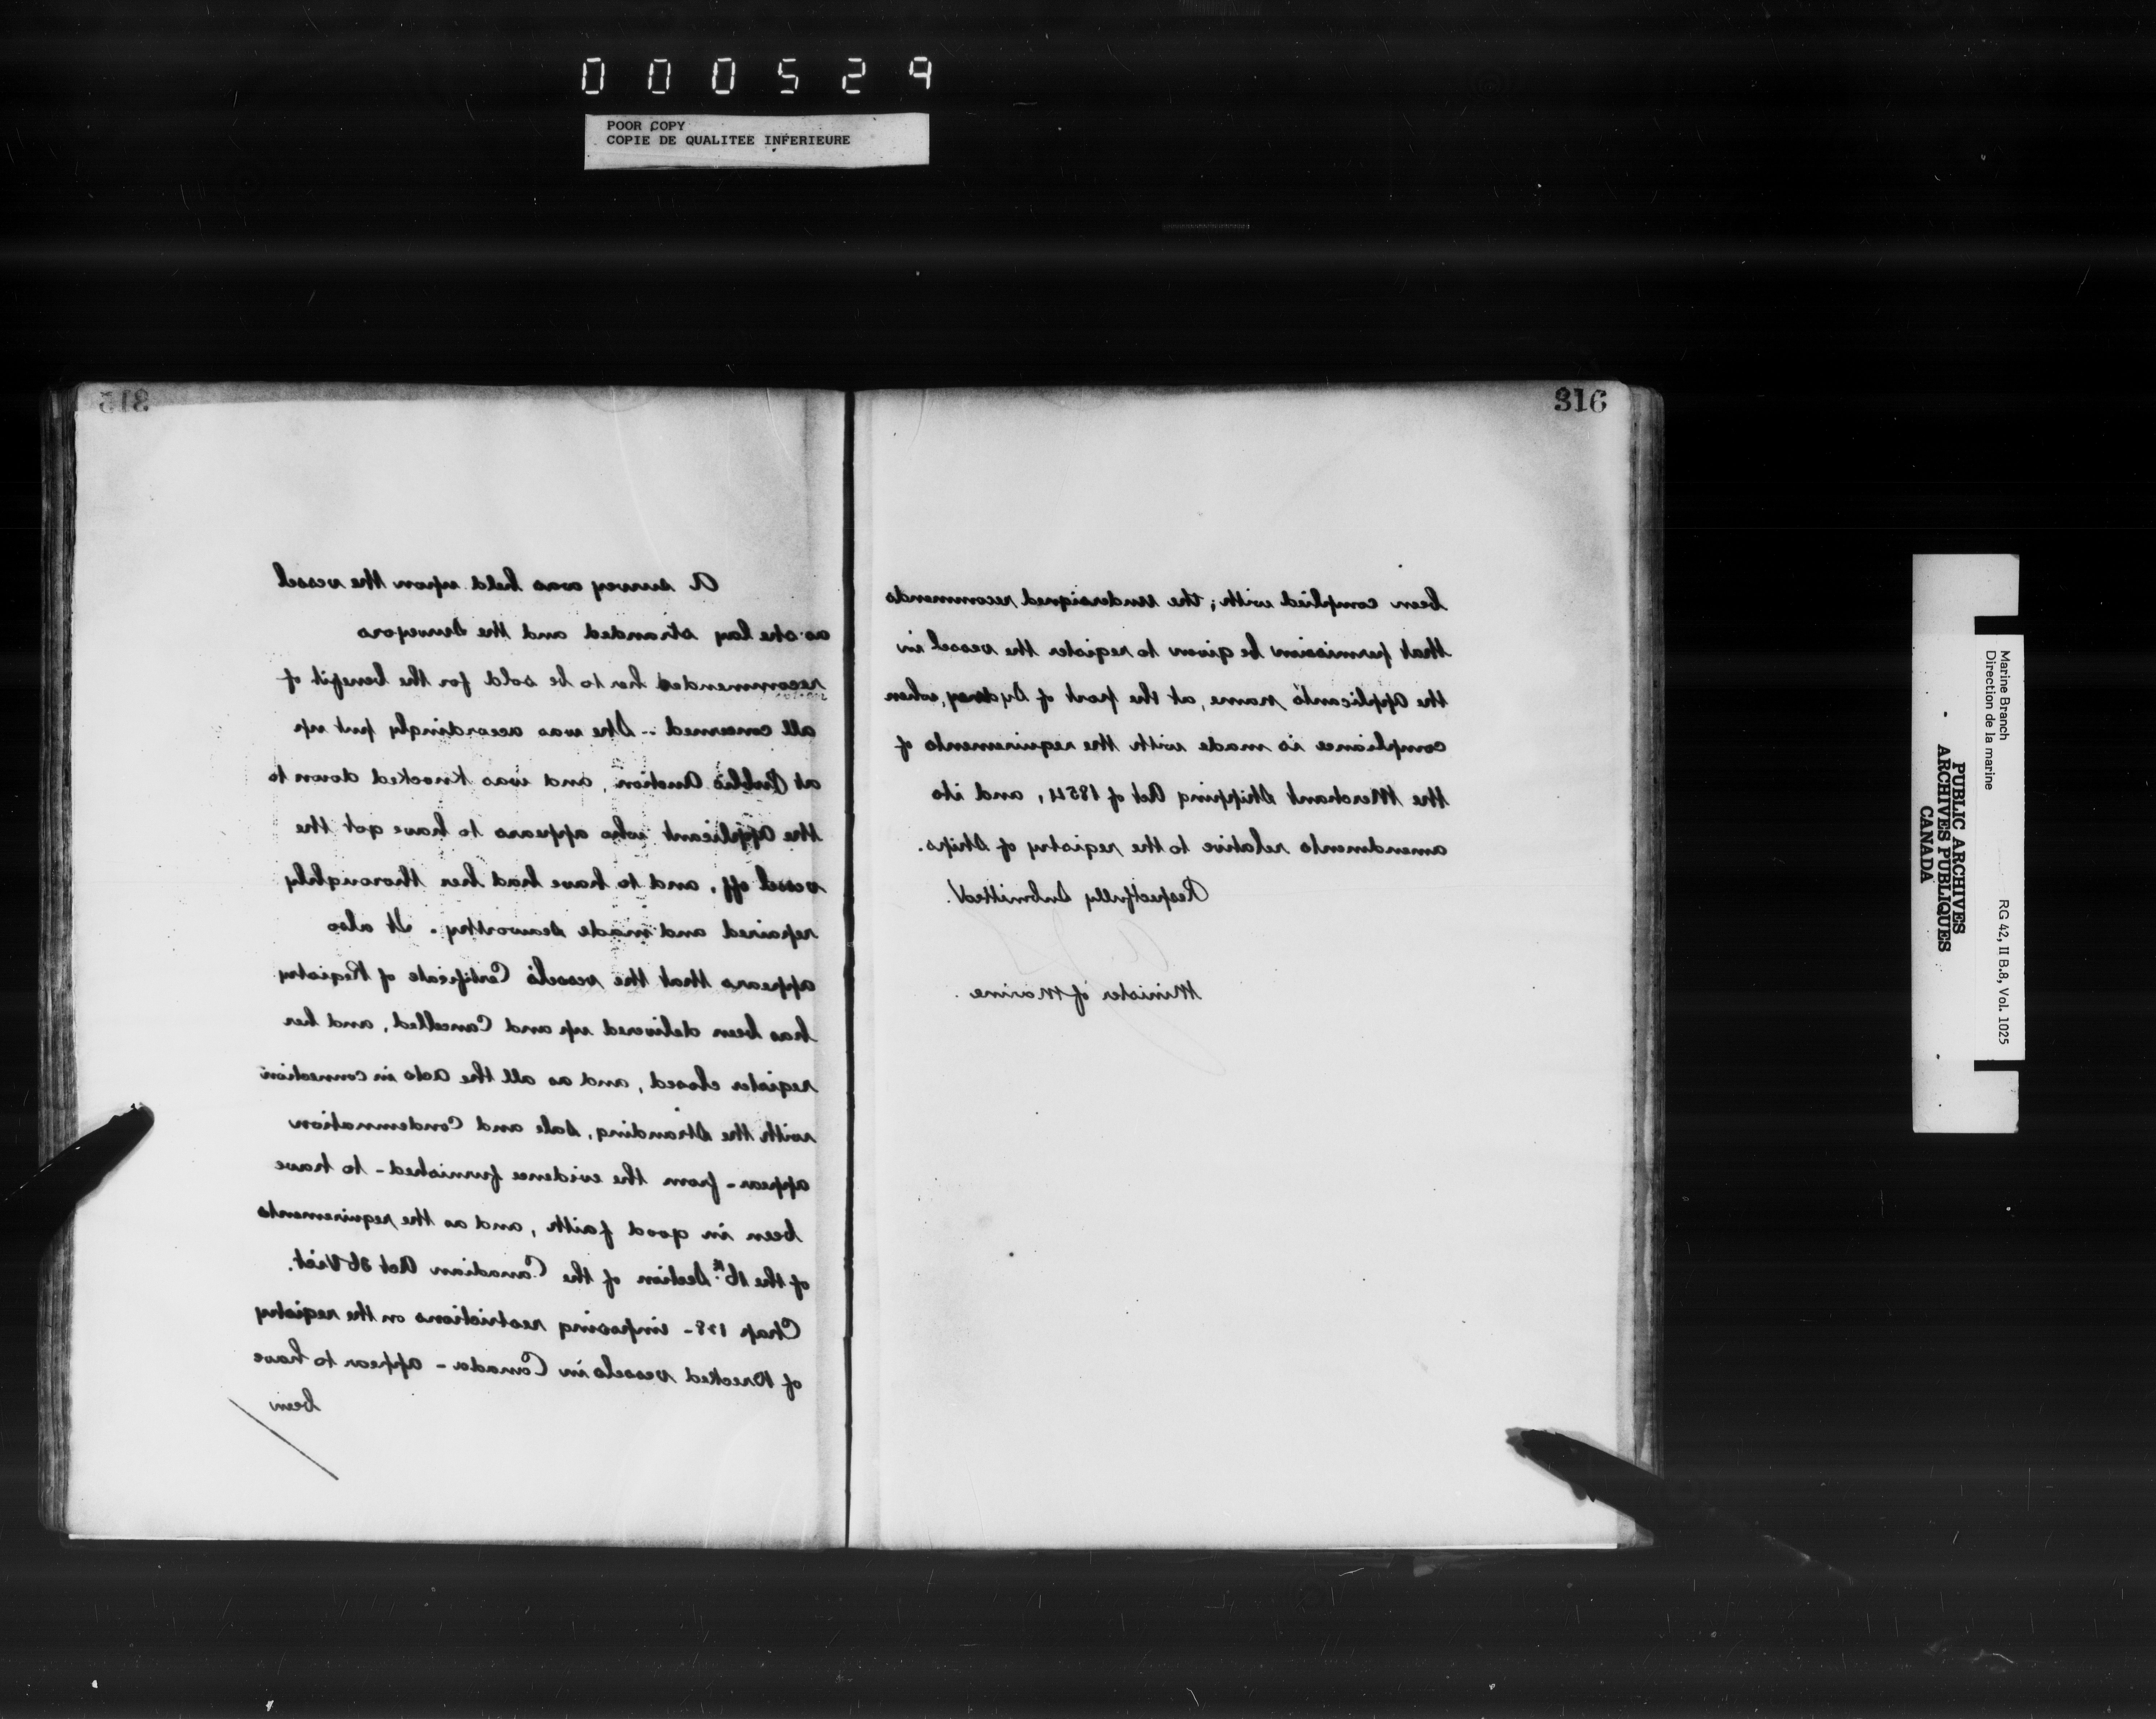 000529
POOR COPY
COPIE DE QUALITEE INFERIEURE
315
A survey was held upon the vessel
as she lay stranded and the Surveyors
recommended her to be sold for the benefit of
all concerned - She was accordingly put up
at Public Auction, and was knocked down to
the Applicant who appears to have got the
vessel off, and to have had her thoroughly
repaired and made seaworthy. It also
appears that the vessel's Certificate of Registry
has been delivered up and Cancelled, and her
register closed, and as all the acts in connection
with the Stranding, Sale and Condemnation
appear - from the evidence furnished - to have
been in good faith, and as the requirements
of the 16th Section of the Canadian Act 36 Vict.
Chap 128 - imposing restrictions on the registry
of Wrecked vessels in Canada - appear to have
been
316
been complied with; the Undersigned recommends
that permission be given to register the vessel in
the Applicant's name, at the port of Sydney, when
compliance is made with the requirements of
the Merchant Shipping Act of 1854, and its
amendments relative to the registry of Ships.
Respectfully Submitted.
Minister of Marine.
Marine Branch
Direction de la marine
RG 42, II B.8, Vol. 1025
PUBLIC ARCHIVES
ARCHIVES PUBLIQUES
CANADA